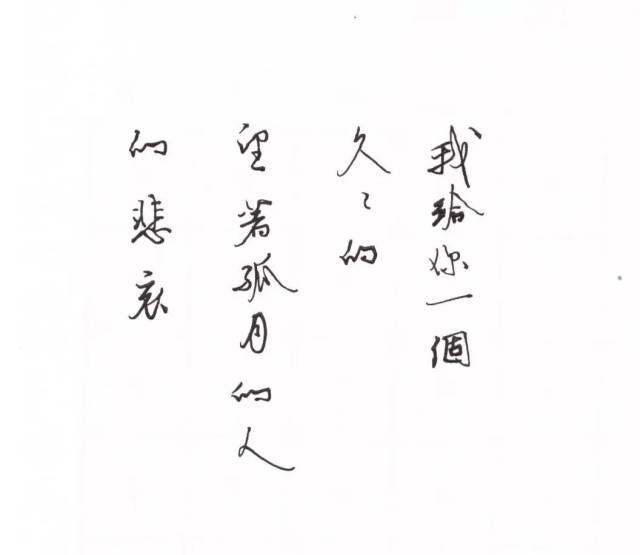 我給你一個
久々的
望着孤月的人
的悲哀